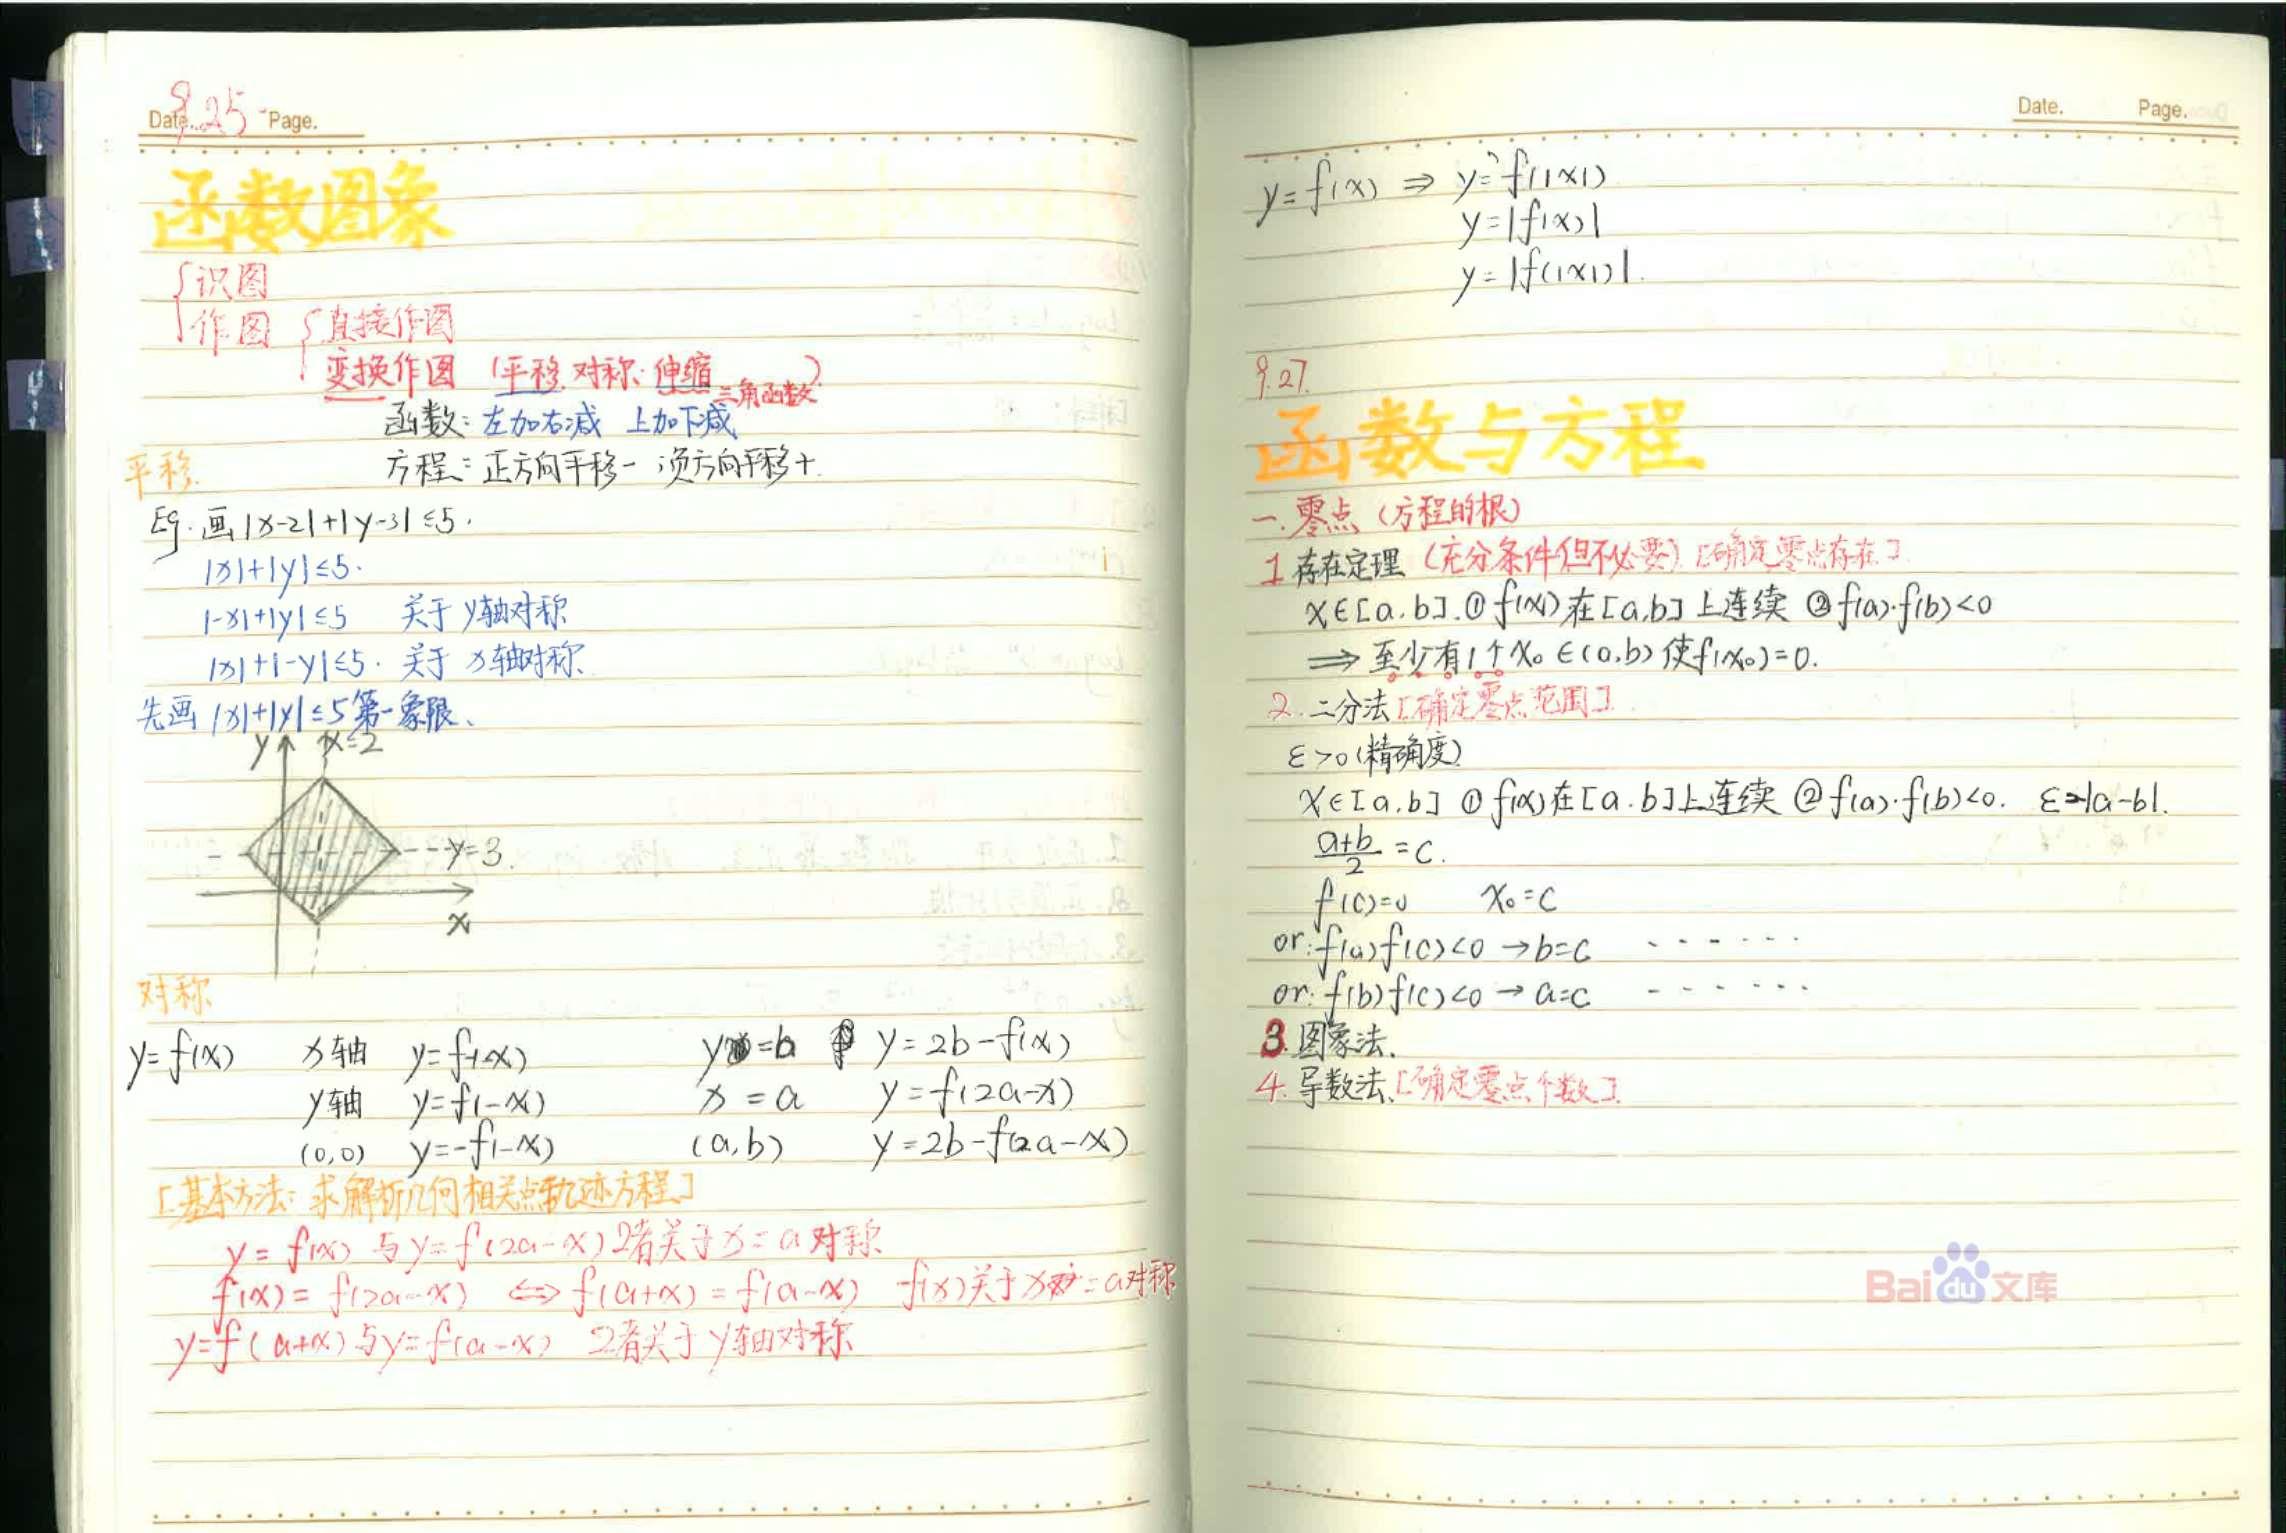 Date. 9.25 Page.
函数图象
识图
作图 直接作图
变换作图 (平移、对称、伸缩 三角函数)
函数: 左加右减 上加下减
平移. 方程: 正方向平移- 负方向平移+.
Eg. 画|x-2|+|y-3|≤5.
|x|+|y|≤5.
|-x|+|y|≤5 关于y轴对称
|x|+|-y|≤5. 关于x轴对称
先画|x|+|y|≤5第一象限、
y x=2
y=3.
x
对称
y=f(x) x轴 y=f(-x) y=b y=2b-f(x)
y轴 y=f(-x) x=a y=f(2a-x)
(0,0) y=-f(-x) (a,b) y=2b-f(2a-x)
[基本方法: 求解析几何相关点轨迹方程]
y=f(x) 与y=f(2a-x) 2者关于x=a对称
f(x)=f(2a-x) ⇔ f(a+x)=f(a-x) f(x)关于x=a对称
y=f(a+x)与y=f(a-x) 2者关于y轴对称
Date. Page.
y=f(x) ⇒ y=f(|x|)
y=|f(x)|
y=|f(|x|)|.
9.27.
函数与方程
一.零点(方程的根)
1 存在定理(充分条件但不必要)[确定零点存在].
x∈[a,b].①f(x)在[a,b]上连续 ②f(a)·f(b)<0
⇒至少有1个x₀∈(a,b)使f(x₀)=0.
2.二分法[确定零点范围]
ε>0(精确度)
x∈[a,b] ①f(x)在[a.b]上连续 ②f(a)·f(b)<0. ε=|a-b|.
a+b/2=c.
f(c)=0 x₀=c
or:f(a)f(c)<0→b=c ······
or:f(b)f(c)<0→a=c ······
3.图象法.
4.导数法.[确定零点个数].
Baidu文库